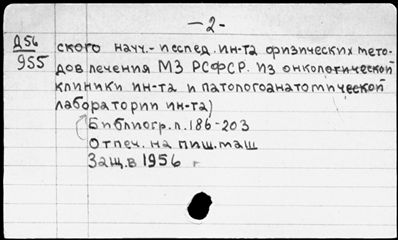 — 2 —
Д56 ского науч.-исслед. ин-та физических мето-
955 дов лечения МЗ РСФСР. Из онкологической
клиники ин-та и патологоанатомической
лаборатории ин-та)
Библиогр. л. 186-203
Отпеч. на пиш. маш
Защ. в 1956 г